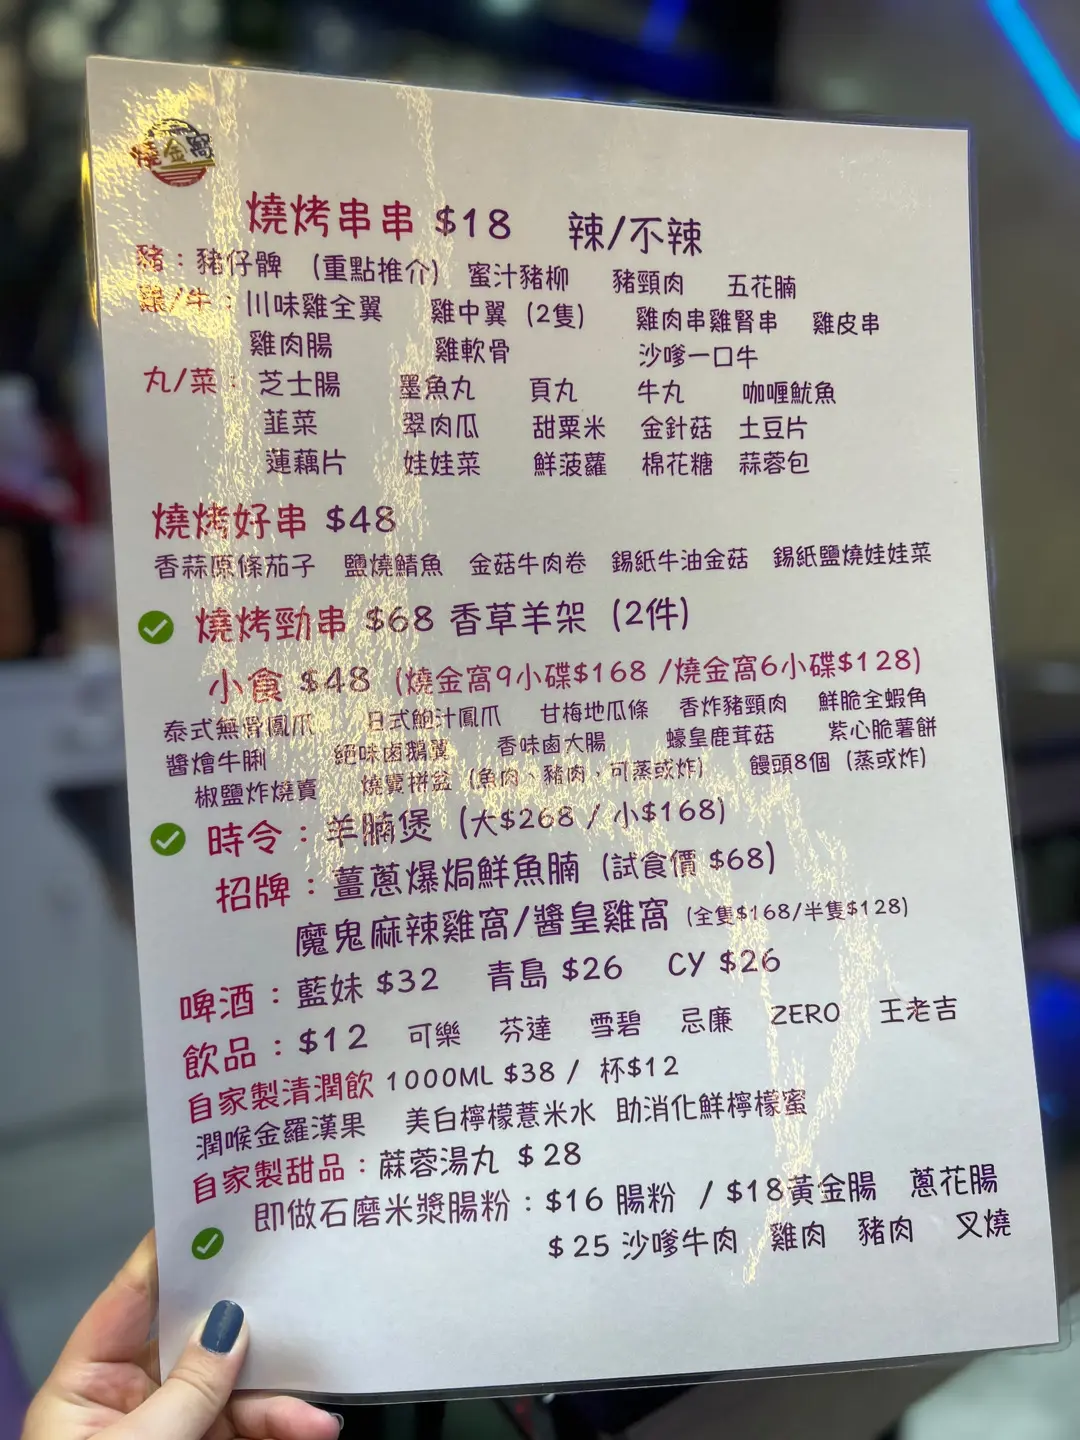 燒金窩
燒烤串串 $18 辣/不辣
豬：豬仔髀 (重點推介) 蜜汁豬柳 豬頸肉 五花腩
雞/牛：川味雞全翼 雞中翼 (2隻) 雞肉串雞腎串 雞皮串
雞肉腸 雞軟骨 沙嗲一口牛
丸/菜：芝士腸 墨魚丸 貢丸 牛丸 咖喱魷魚
韮菜 翠肉瓜 甜粟米 金針菇 土豆片
蓮藕片 娃娃菜 鮮菠蘿 棉花糖 蒜蓉包
燒烤好串 $48
香蒜原條茄子 鹽燒鯖魚 金菇牛肉卷 錫紙牛油金菇 錫紙鹽燒娃娃菜
燒烤勁串 $68 香草羊架 (2件)
小食 $48 (燒金窩9小碟$168 /燒金窩6小碟$128)
泰式無骨鳳爪 日式鮑汁鳳爪 甘梅地瓜條 香炸豬頸肉 鮮脆全蝦角
醬燴牛脷 絕味鹵鵝翼 香味鹵大腸 蠔皇鹿茸菇 紫心脆薯餅
椒鹽炸燒賣 燒賣拼盆 (魚肉、豬肉，可蒸或炸) 饅頭8個 (蒸或炸)
時令：羊腩煲 (大$268 / 小$168)
招牌：薑蔥爆焗鮮魚腩 (試食價 $68)
魔鬼麻辣雞窩/醬皇雞窩 (全隻$168/半隻$128)
啤酒：藍妹 $32 青島 $26 CY $26
飲品：$12 可樂 芬達 雪碧 忌廉 ZERO 王老吉
自家製清潤飲 1000ML $38 / 杯$12
潤喉金羅漢果 美白檸檬薏米水 助消化鮮檸檬蜜
自家製甜品：蔴蓉湯丸 $28
即做石磨米漿腸粉：$16 腸粉 / $18黃金腸 蔥花腸
$25 沙嗲牛肉 雞肉 豬肉 叉燒